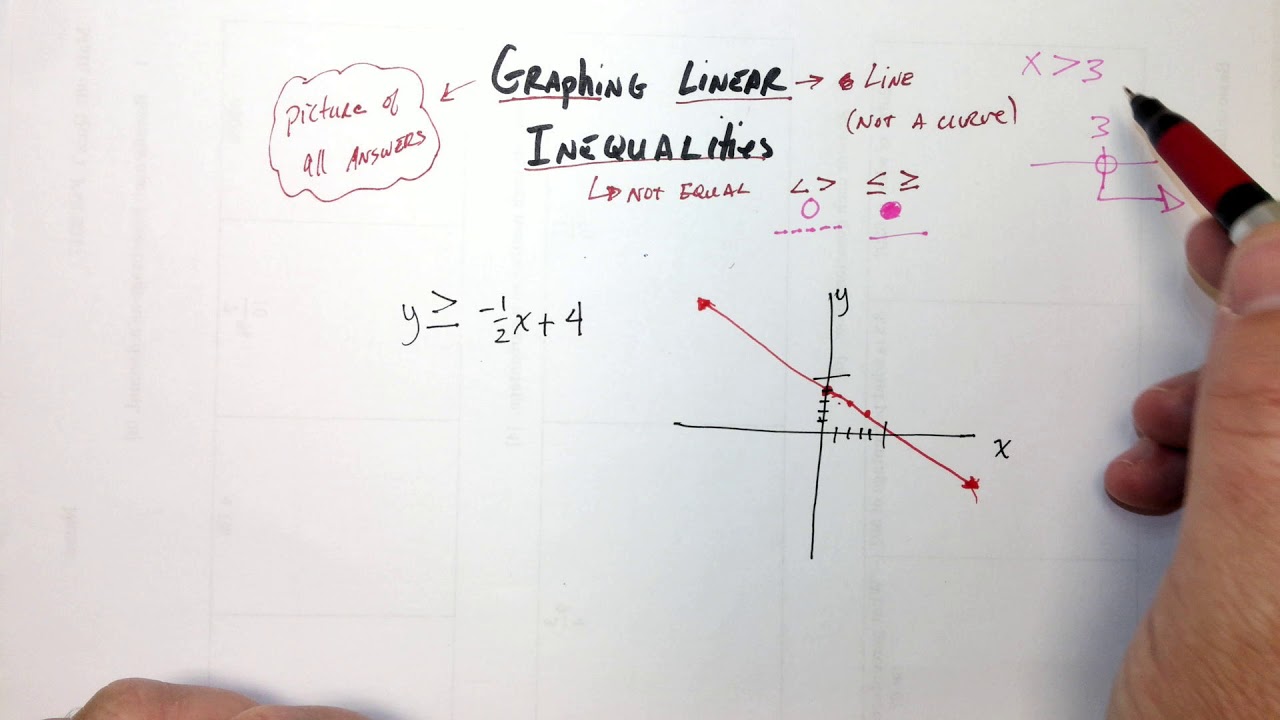 GRAPHING LINEAR → LINE
INEQUALITIES
(NOT A CURVE)
PICTURE OF
ALL ANSWERS
↳ NOT EQUAL < > ≤ ≥
X > 3
3
y ≥ -1/2 x + 4
y
x